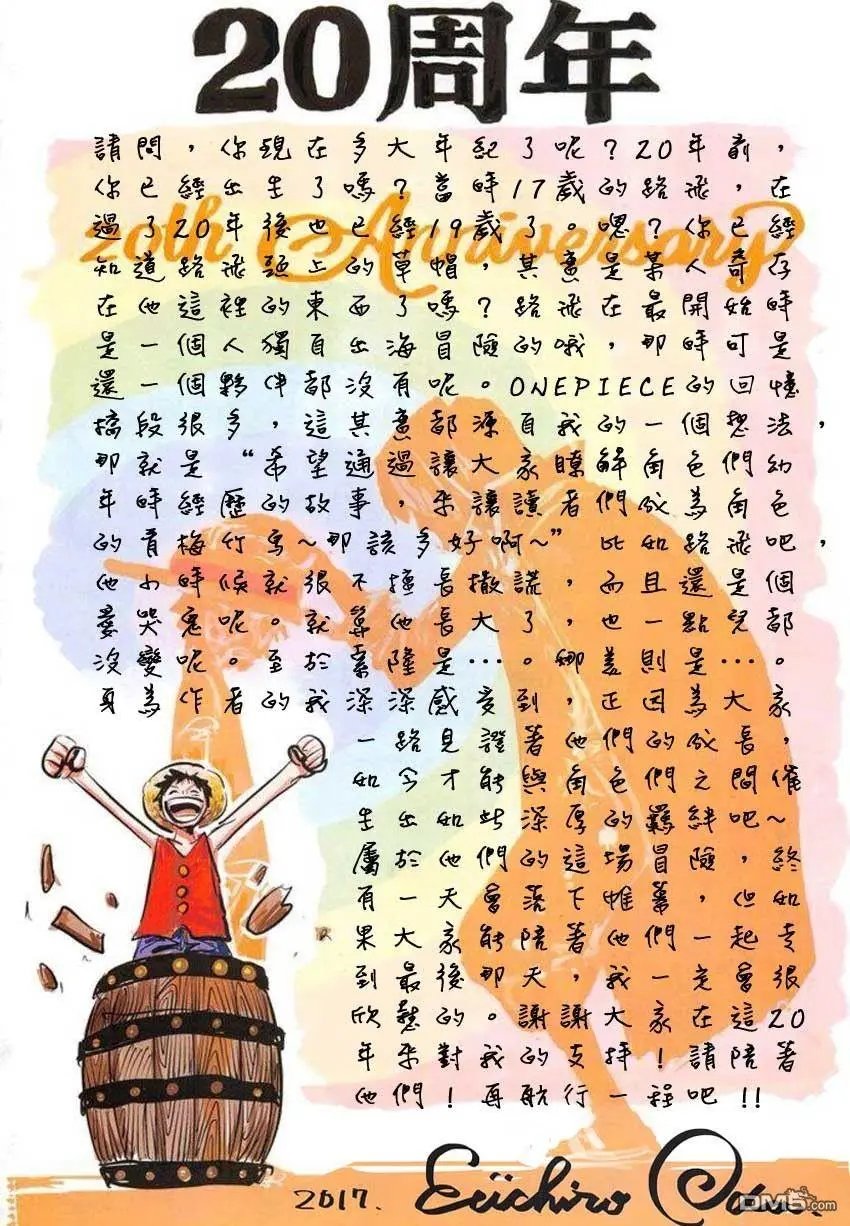 20周年
20th Anniversary
請問，你現在多大年紀了呢？20年前，
你已經出生了嗎？當時17歲的路飛，在
過了20年後也已經19歲了。嗯？你已經
知道路飛頭上的草帽，其實是某人寄存
在他這裡的東西了嗎？路飛在最開始時
是一個人獨自出海冒險的哦，那時可是
還一個夥伴都沒有呢。ONEPIECE的回憶
橋段很多，這其實都源自我的一個想法，
那就是“希望通過讓大家瞭解角色們幼
年時經歷的故事，來讓讀者們成為角色
的青梅竹馬～那該多好啊～”比如路飛吧，
他小時候就很不擅長撒謊，而且還是個
愛哭鬼呢。就算他長大了，也一點兒都
沒變呢。至於索隆是…。娜美則是…。
身為作者的我深深感受到，正因為大家
一路見證著他們的成長，
如今才能與角色們之間催
生出如此深厚的羈絆吧～
屬於他們的這場冒險，終
有一天會落下帷幕，但如
果大家能陪著他們一起走
到最後那天，我一定會很
欣慰的。謝謝大家在這20
年來對我的支持！請陪著
他們！再航行一程吧！！
2017. Eiichiro Oda.
DM5.com